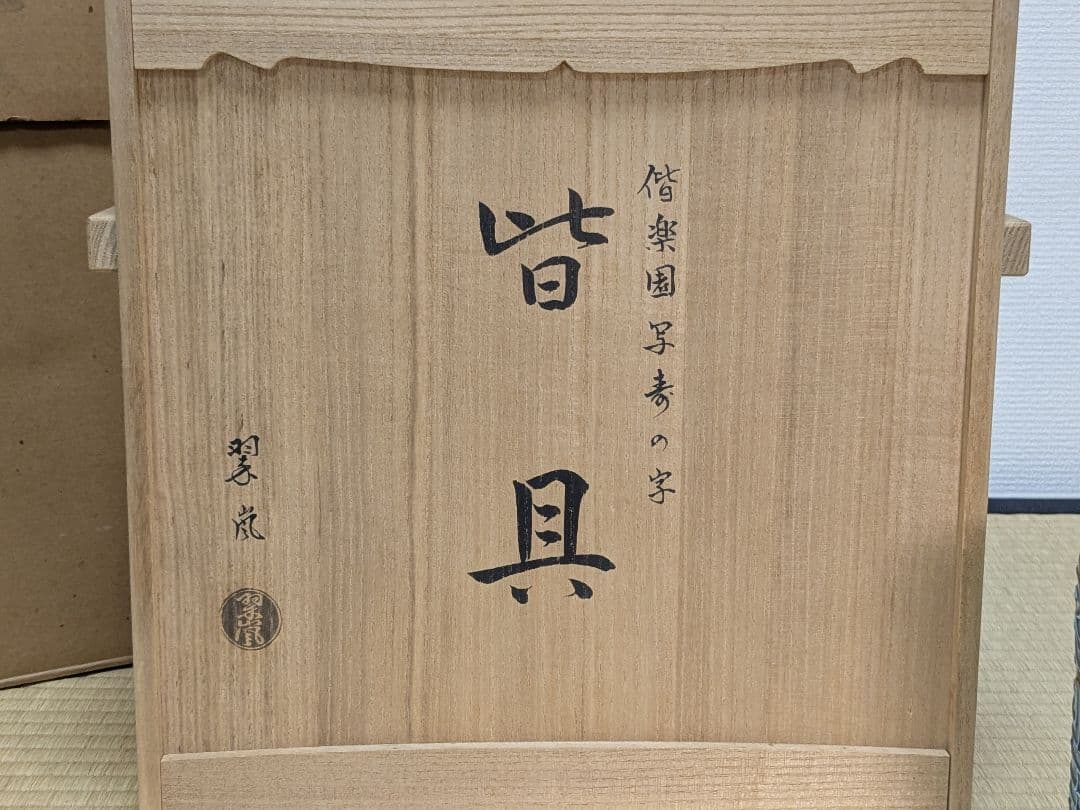 偕楽園写寿の字
皆具
翠嵐
翠嵐